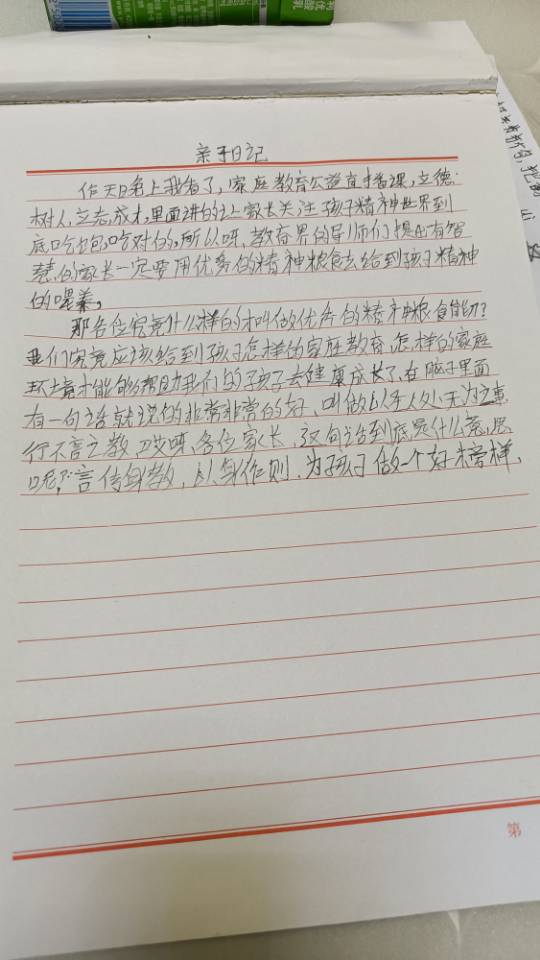 亲子日记
作天日免上我看了，家庭教育公益直播课，立德
树人，立志成才，里面讲的让家长去关注孩子精神世界到
底吃饱，吃对的，所以呀，教育界的导师们提出有智
慧的家长一定要用优秀的精神粮食去给到孩子精神
的喂养，
那各位究竟什么样的才叫做优秀的精神粮食能呢？
我们究竟应该给到孩子怎样的家庭教育，怎样的家庭
环境才能够帮助我们的孩子去健康成长了，在脑子里面
有一句话就说的非常非常的好，叫做以圣人处无为之事，
行不言之教，哎呀，各位家长，这句话到底是什么意思
呢？言传身教，以身作则，为孩子做一个好榜样，
第